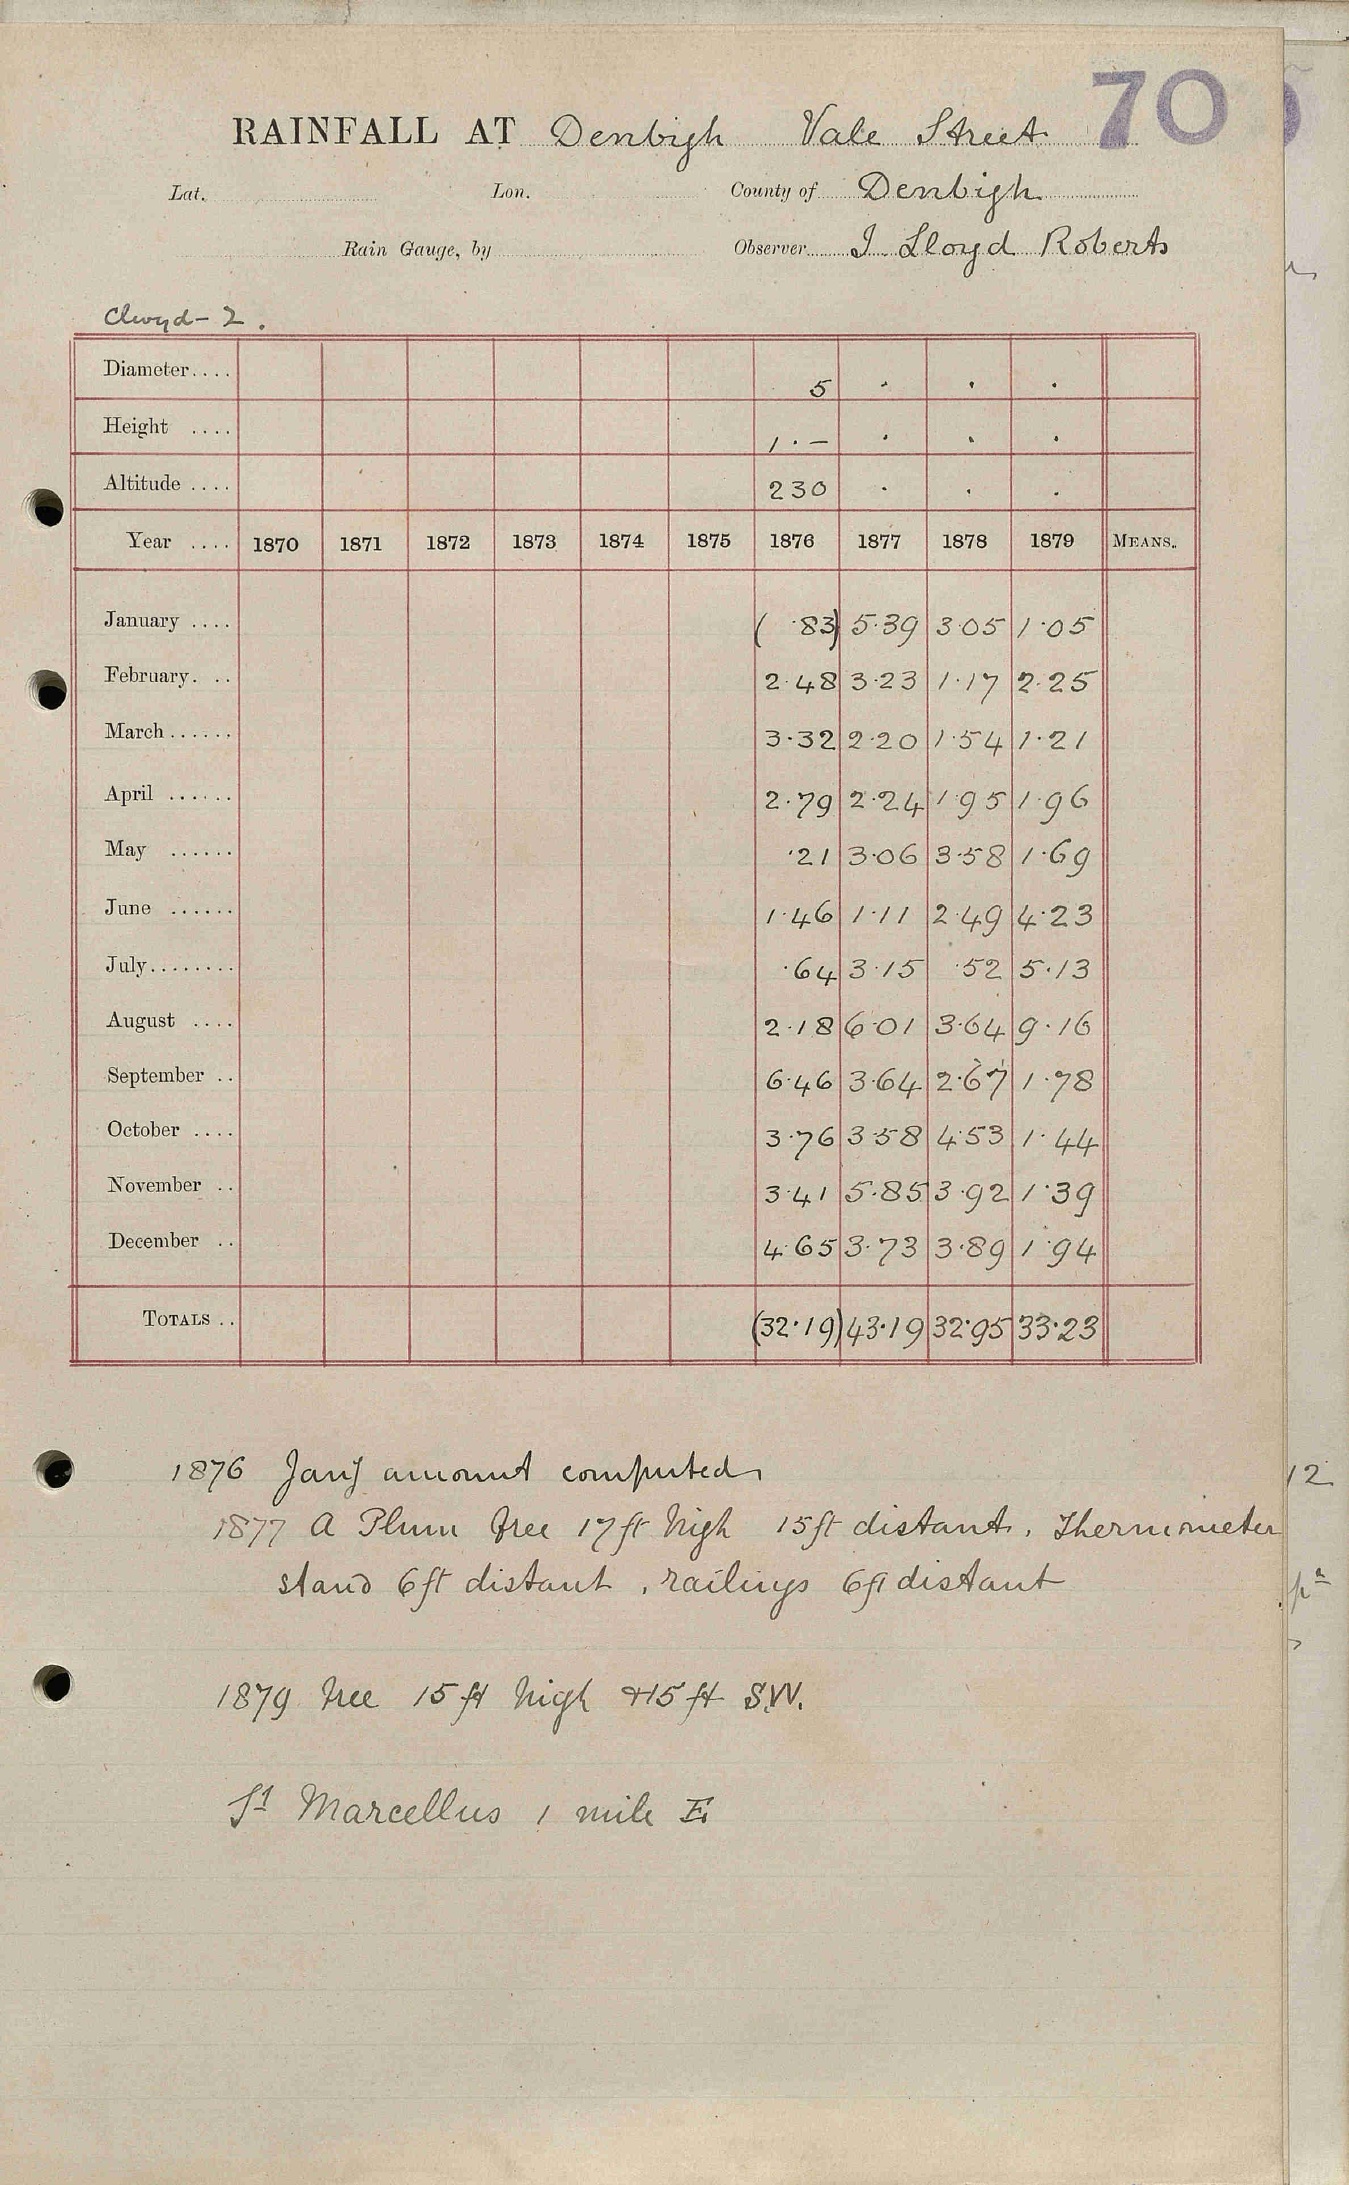 70
RAINFALL AT Denbigh Vale Street
Lat. Lon. County of Denbigh
Rain Gauge, by Observer J. Lloyd Roberts
Clwyd - 2.
Diameter.... 5 . . .
Height .... 1 . - . . .
Altitude .... 230 . . .
Year .... 1870 1871 1872 1873 1874 1875 1876 1877 1878 1879 MEANS.
January .... ( .83) 5.39 3.05 1.05
February. .. 2.48 3.23 1.17 2.25
March...... 3.32 2.20 1.54 1.21
April ...... 2.79 2.24 1.95 1.96
May ...... .21 3.06 3.58 1.69
June ...... 1.46 1.11 2.49 4.23
July........ .64 3.15 .52 5.13
August .... 2.18 6.01 3.64 9.16
September .. 6.46 3.64 2.67 1.78
October .... 3.76 3.58 4.53 1.44
November .. 3.41 5.85 3.92 1.39
December .. 4.65 3.73 3.89 1.94
TOTALS .. (32.19) 43.19 32.95 33.23
1876 Jany amount computed
1877 A Plum tree 17ft high 15ft distant. Thermometer
stand 6ft distant, railings 6ft distant
1879 tree 15 ft high & 15 ft S.W.
St Marcellus 1 mile E.
12